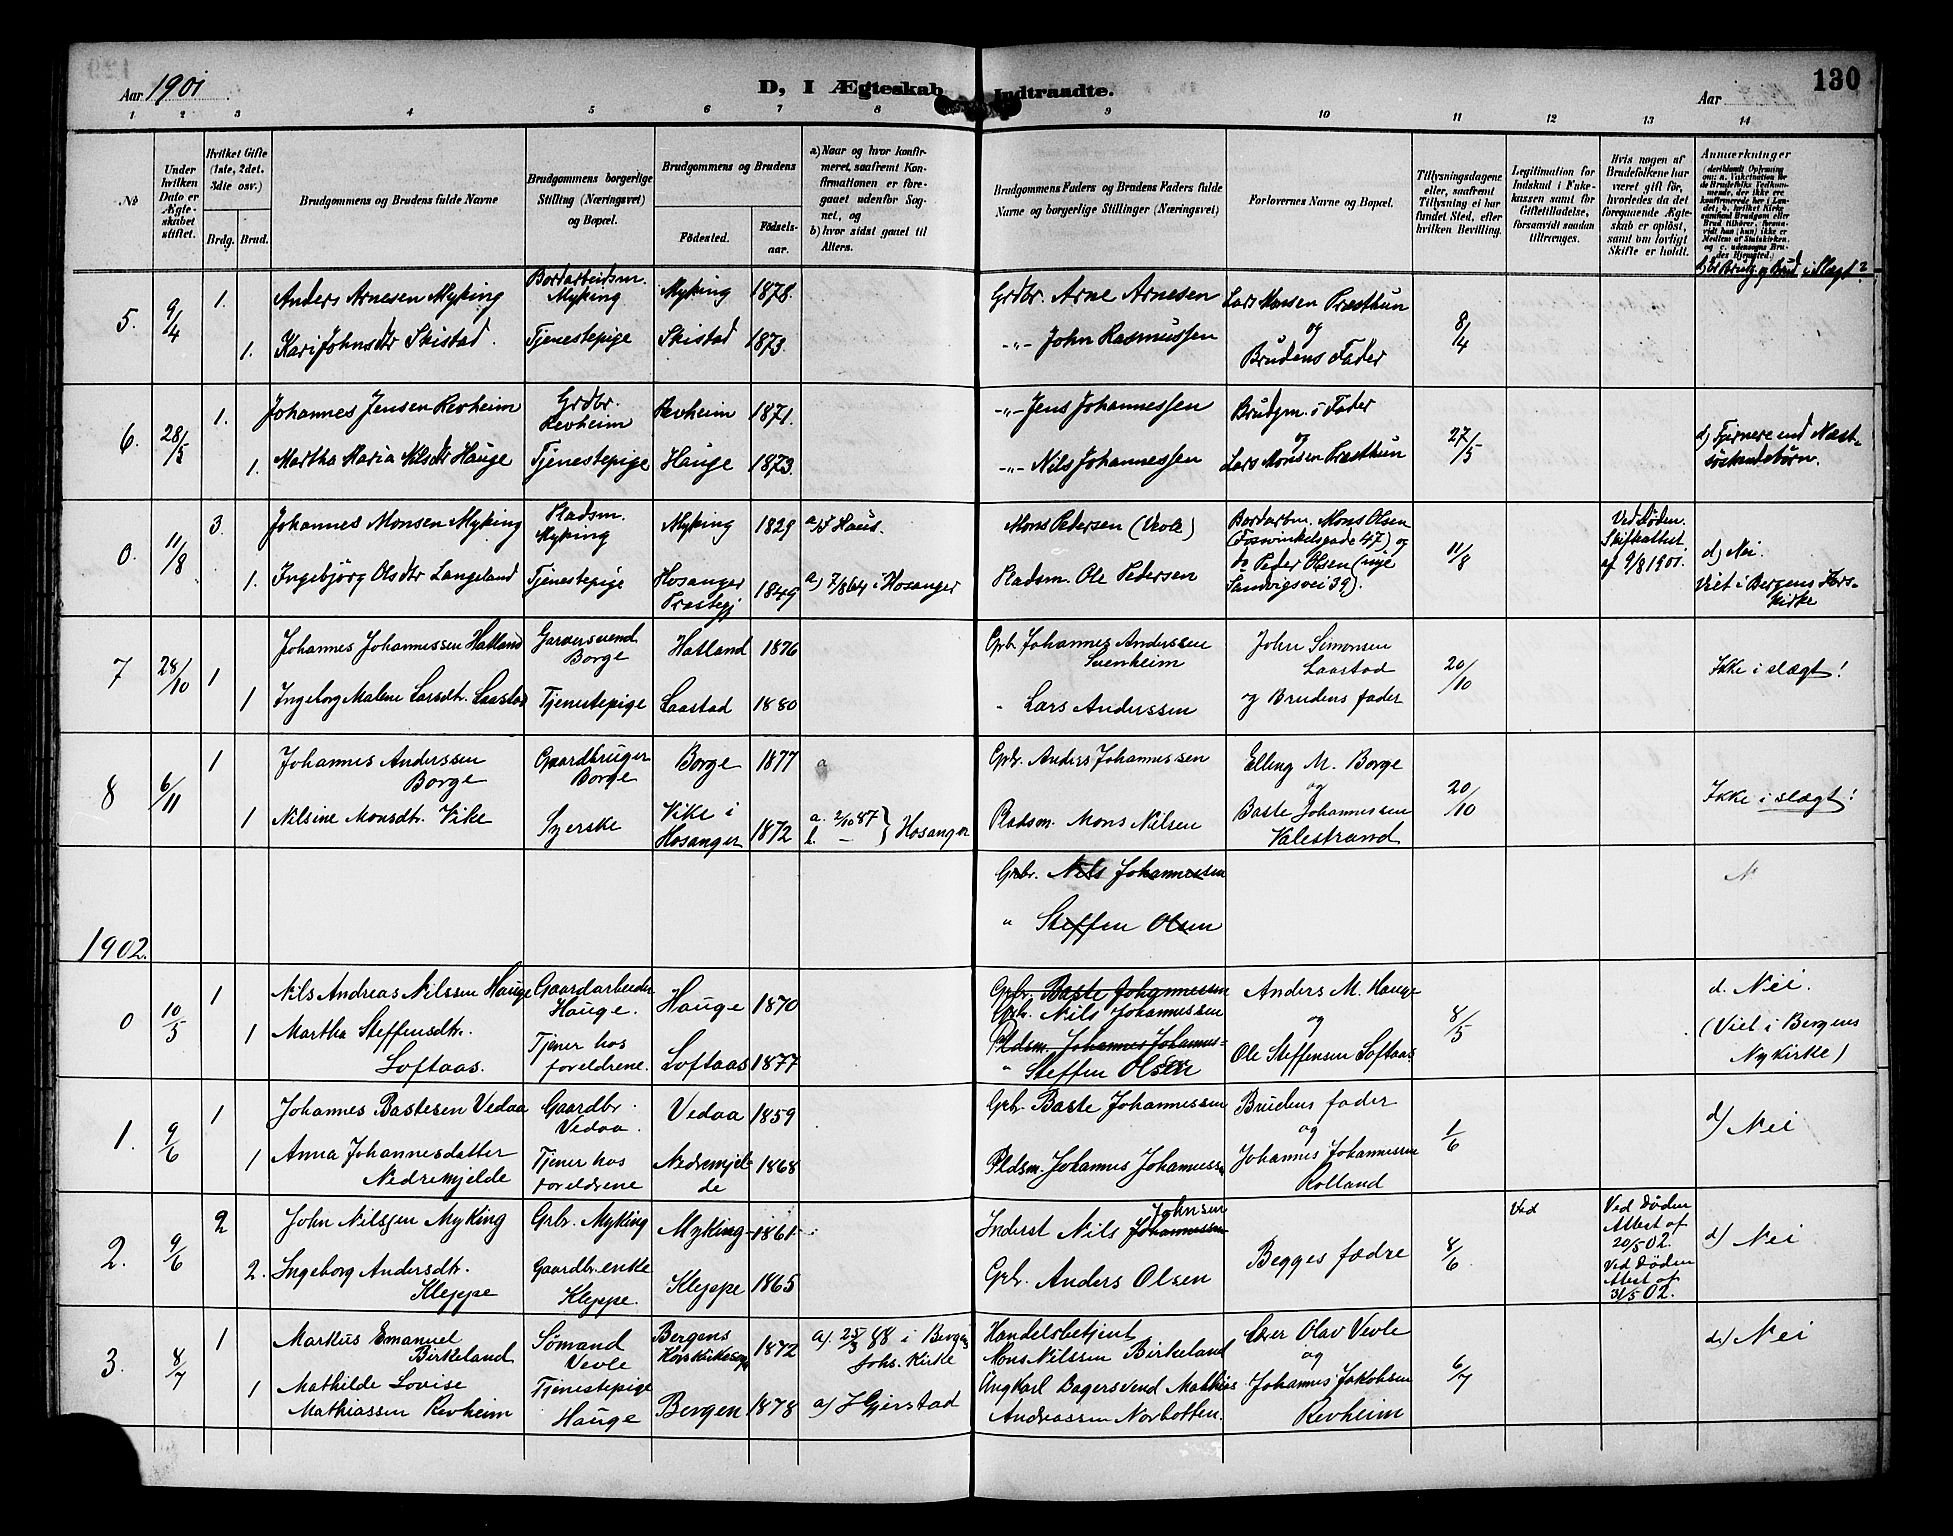 Aar 1901 D, I Ægteskab Indtraadte. Aar 130
1 2 3 4 5 6 7 8 9 10 11 12 13 14
No
Under hvilken Dato er Ægteskabet stiftet.
Hvilket Gifte (1ste, 2det. 3die osv.)
Brdg. Brud.
Brudgommens og Brudens fulde Navne
Brudgommens borgerlige Stilling (Næringsvei) og Bopæl.
Brudgommens og Brudens
Fødested. Fødselsaar.
a) Naar og hvor konfirmeret, saafremt Konfirmationen er foregaaet udenfor Sognet, og
b) hvor sidst gaaet til Alters.
Brudgommens Faders og Brudens Faders fulde Navne og borgerlige Stillinger (Næringsvei)
Forlovernes Navne og Bopæl.
Tillysningsdagene eller, saafremt Tillysning ei har fundet Sted, efter hvilken Bevilling.
Legitimation for Indskud i Enkekassen samt for Giftetilladelse, forsaavidt saadan tiltrænges.
Hvis nogen af Brudefolkene har været gift før, hvorledes da det foregaaende Ægteskab er opløst, samt om lovligt Skifte er holdt.
Anmærkninger
d) Er Brudg. og Brud i Slægt?
5. 9/4 1. Anders Arnesen Myking Bordarbeidsm. Myking Myking 1878. Grdbr. Arne Arnesen Lars Monsen Præsthun og Brudens Fader 8/4
1. Kari Johnsdtr Skistad. Tjenestepige Skistad 1873. -"- John Rasmussen
6. 28/5 1. Johannes Jensen Revheim Grdbr. Revheim Revheim 1871. -"- Jens Johannessen Brudgm. s Fader og Lars Monsen Præsthun 27/5 d) Fjernere end Næstsøskendebørn.
1. Martha Maria Nilsdtr Hauge Tjenestepige Hauge 1873. -"- Nils Johannessen
0. 11/8 3. Johannes Monsen Myking Pladsm. Myking Myking 1829 a) Haus. Mons Pedersen (Veole) Bordarbm. Mons Olsen (Foswinkelsgade 47) og do Peder Olsen (nye Sandvigsvei 39). 11/8 Ved Døden. Skifteattest af 9/8 1901. d) Nei. Viet i Bergens Korskirke
1. Ingebjørg Olsdtr Langeland Tjenestepige Hosanger Prestegj 1849 a) 7/8 64 i Hosanger Pladsm. Ole Pedersen
7 28/10 1 Johannes Johannessen Hatland Garversvend. Borge Hatland 1876 Grb. Johannes Anderssen Seenheim John Simonsen Laastad og Brudens fader 20/10 Ikke i slægt!
1 Ingeborg Malene Larsdtr. Laastad Tjenestepige Laastad 1880 " Lars Anderssen
8 6/11 1 Johannes Anderssen Borge Gaardbruger Borge Borge 1877 a Grbr. Anders Johannessen Elling M. Borge og Baste Johannessen Valestrand 20/10 Ikke i slægt!
1 Nilsine Monsdtr. Vike Syerske Vike i Hosanger 1872 a. 2/10 87 b. - } Hosanger Pladsm. Mons Nilsen
Grbr. Nils Johannessen N
" Steffen Olsen
1902.
0 10/5 1 Nils Andreas Nilssen Hauge Gaardarbeider Hauge. Hauge 1870 Grbr. Baste Johannessen Grbr. Nils Johannessen Anders M. Hauge og Ole Steffensen Loftaas 8/5 d. Nei. (Viet i Bergens Nykirke)
1 Martha Steffensdtr. Loftaas. Tjener hos foreldrene. Loftaas 1877 Pldsm. Johannes Johannessen " Steffen Olsen
1. 9/6 1 Johannes Bastesen Vedaa Gaardbr. Vedaa. Vedaa 1859 Grbr. Baste Johannessen Brudens fader og Johannes Johannessen Rolland 1/6 d) Nei
1 Anna Johannesdatter Nedremjelde Tjener hos foreldrene Nedremjelde 1868 Pldsm. Johannes Johannessen
2. 9/6 2 John Nilssen Myking Grbr. Myking Myking 1861 Inderst Nils Johannessen Johnsen Begges fædre 8/6 Ved Ved Døden Attest af 20/5 02. d) Nei
2. Ingeborg Andersdtr. Kleppe Gaardbr. enke Kleppe. Kleppe 1865 Grbr. Anders Olsen Ved Døden Attest af 31/5 02.
3. 8/7 1 Markus Emanuel Birkeland Sømand Vevle Bergens Korskirkesogn 1872 a). 25/3 88 i Bergens Johs. Kirke Handelsbetjent Mons Nilssen Birkeland Lærer Olav Vevle og Johannes Jakobsen Revheim 6/7 d.) Nei
1 Mathilde Lovise Mathiassen Revheim Tjenestepige Hauge Bergen 1878 a) I Gjerstad Ungkarl Bagersvend Mathias Andreassen Norbotten.